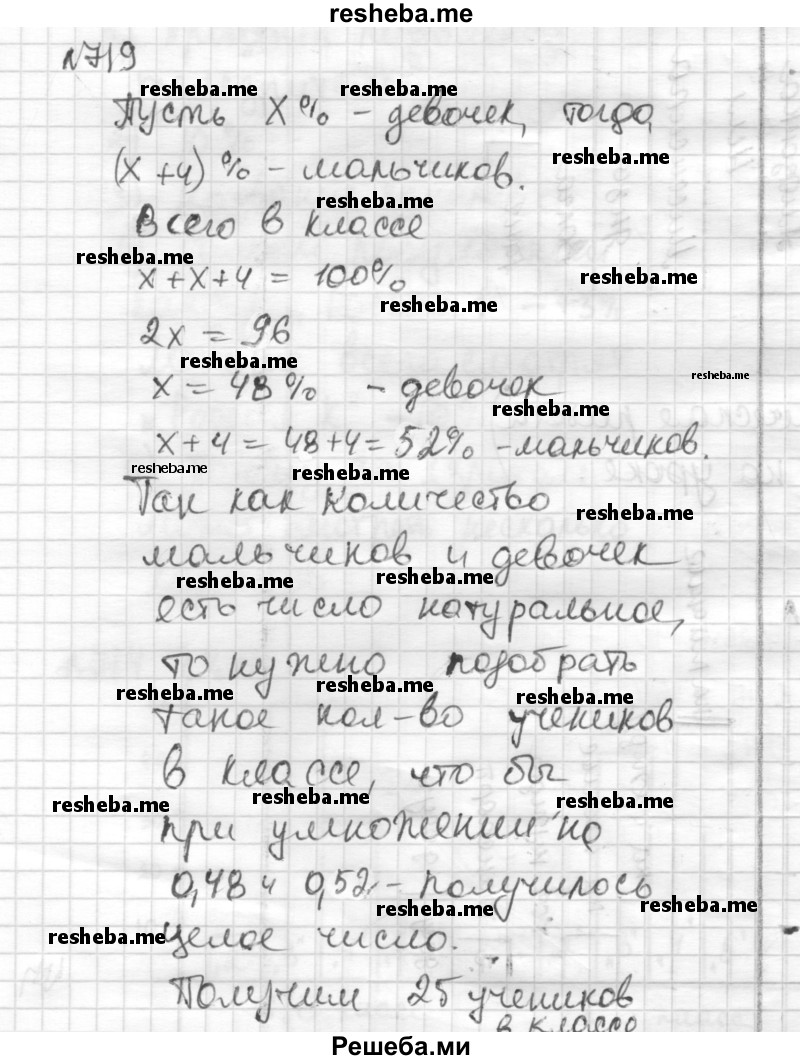 resheba.me
№719
resheba.me resheba.me
Пусть x% - девочек, тогда
resheba.me
(x+4)% - мальчиков.
resheba.me
Всего в классе
resheba.me
x+x+4 = 100%
resheba.me
resheba.me
2x = 96
resheba.me
resheba.me
x = 48% - девочек
resheba.me
x+4 = 48+4 = 52% - мальчиков.
resheba.me resheba.me
Так как количество
resheba.me
мальчиков и девочек
resheba.me resheba.me
есть число натуральное,
то нужно подобрать
resheba.me resheba.me resheba.me
такое кол-во учеников
в классе, что бы
resheba.me resheba.me resheba.me
при умножении на
0,48 и 0,52 - получилось
resheba.me resheba.me
resheba.me
целое число.
Получим 25 учеников
в классе
Решеба.ми